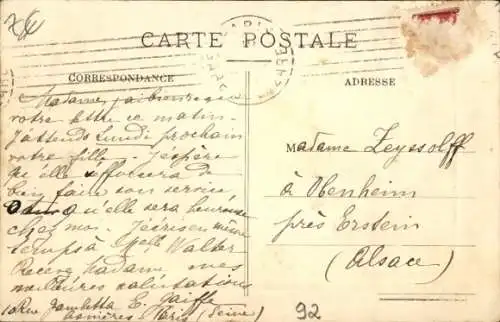 CARTE POSTALE
CORRESPONDANCE
Madame, j'ai bien reçu
votre lettre ce matin.
J'attends Lundi prochain
votre fille. J'espère
qu'elle s'efforcera de
bien faire son service
qu'elle sera heureuse
chez moi. J'écris en même
temps à Melle Walter
Recevez Madame mes
meilleures salutations
E. Jaiffe
1 Rue Gambetta
Asnières Paris (Seine)
ADRESSE
Madame Zeyssolff
à Obenheim
près Erstein
(Alsace)
92